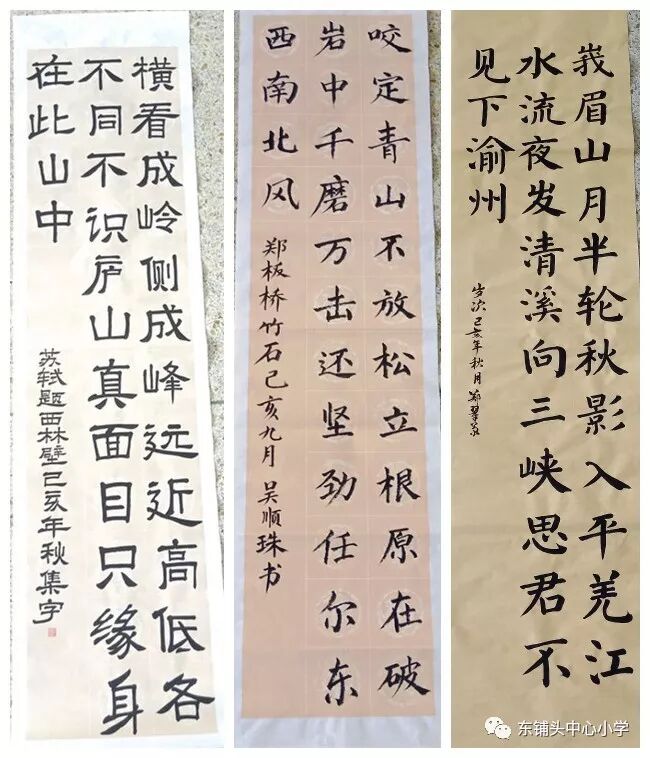 横看成岭侧成峰远近高低各
不同不识庐山真面目只缘身
在此山中
苏轼题西林壁己亥年秋集字
咬定青山不放松立根原在破
岩中千磨万击还坚劲任尔东
西南北风
郑板桥竹石己亥九月 吴顺珠书
峨眉山月半轮秋影入平羌江
水流夜发清溪向三峡思君不
见下渝州
岁次己亥年秋月
东铺头中心小学